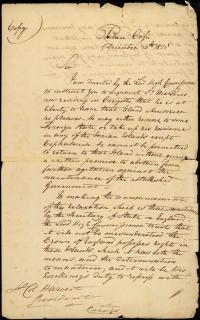 (Copy)
Palace Corfu
December 30th 185
Sir
I am directed by the Lord High Commissioner
to instruct you to acquaint
now residing in Cerigotto that he is at
liberty to leave that Island whenever
he pleases. He may either remove to some
foreign State or take up his residence
in any of the Ionian Islands except
Cephalonia. He cannot be permitted
to return to that Island without giving
a written promise to abstain from
further agitation against the
maintenance of the established
Government.
In making the announcement
of the relaxation which is thus sanctioned
by the Secretary of State in England,
the Lord High Commissioner trusts that
it will not be misunderstood. The
Crown of England possesses rights in
these Islands which it has both the
means and the determination
to maintain; and it will be His
Excellency's duty to repress with
Resident
Cerigo